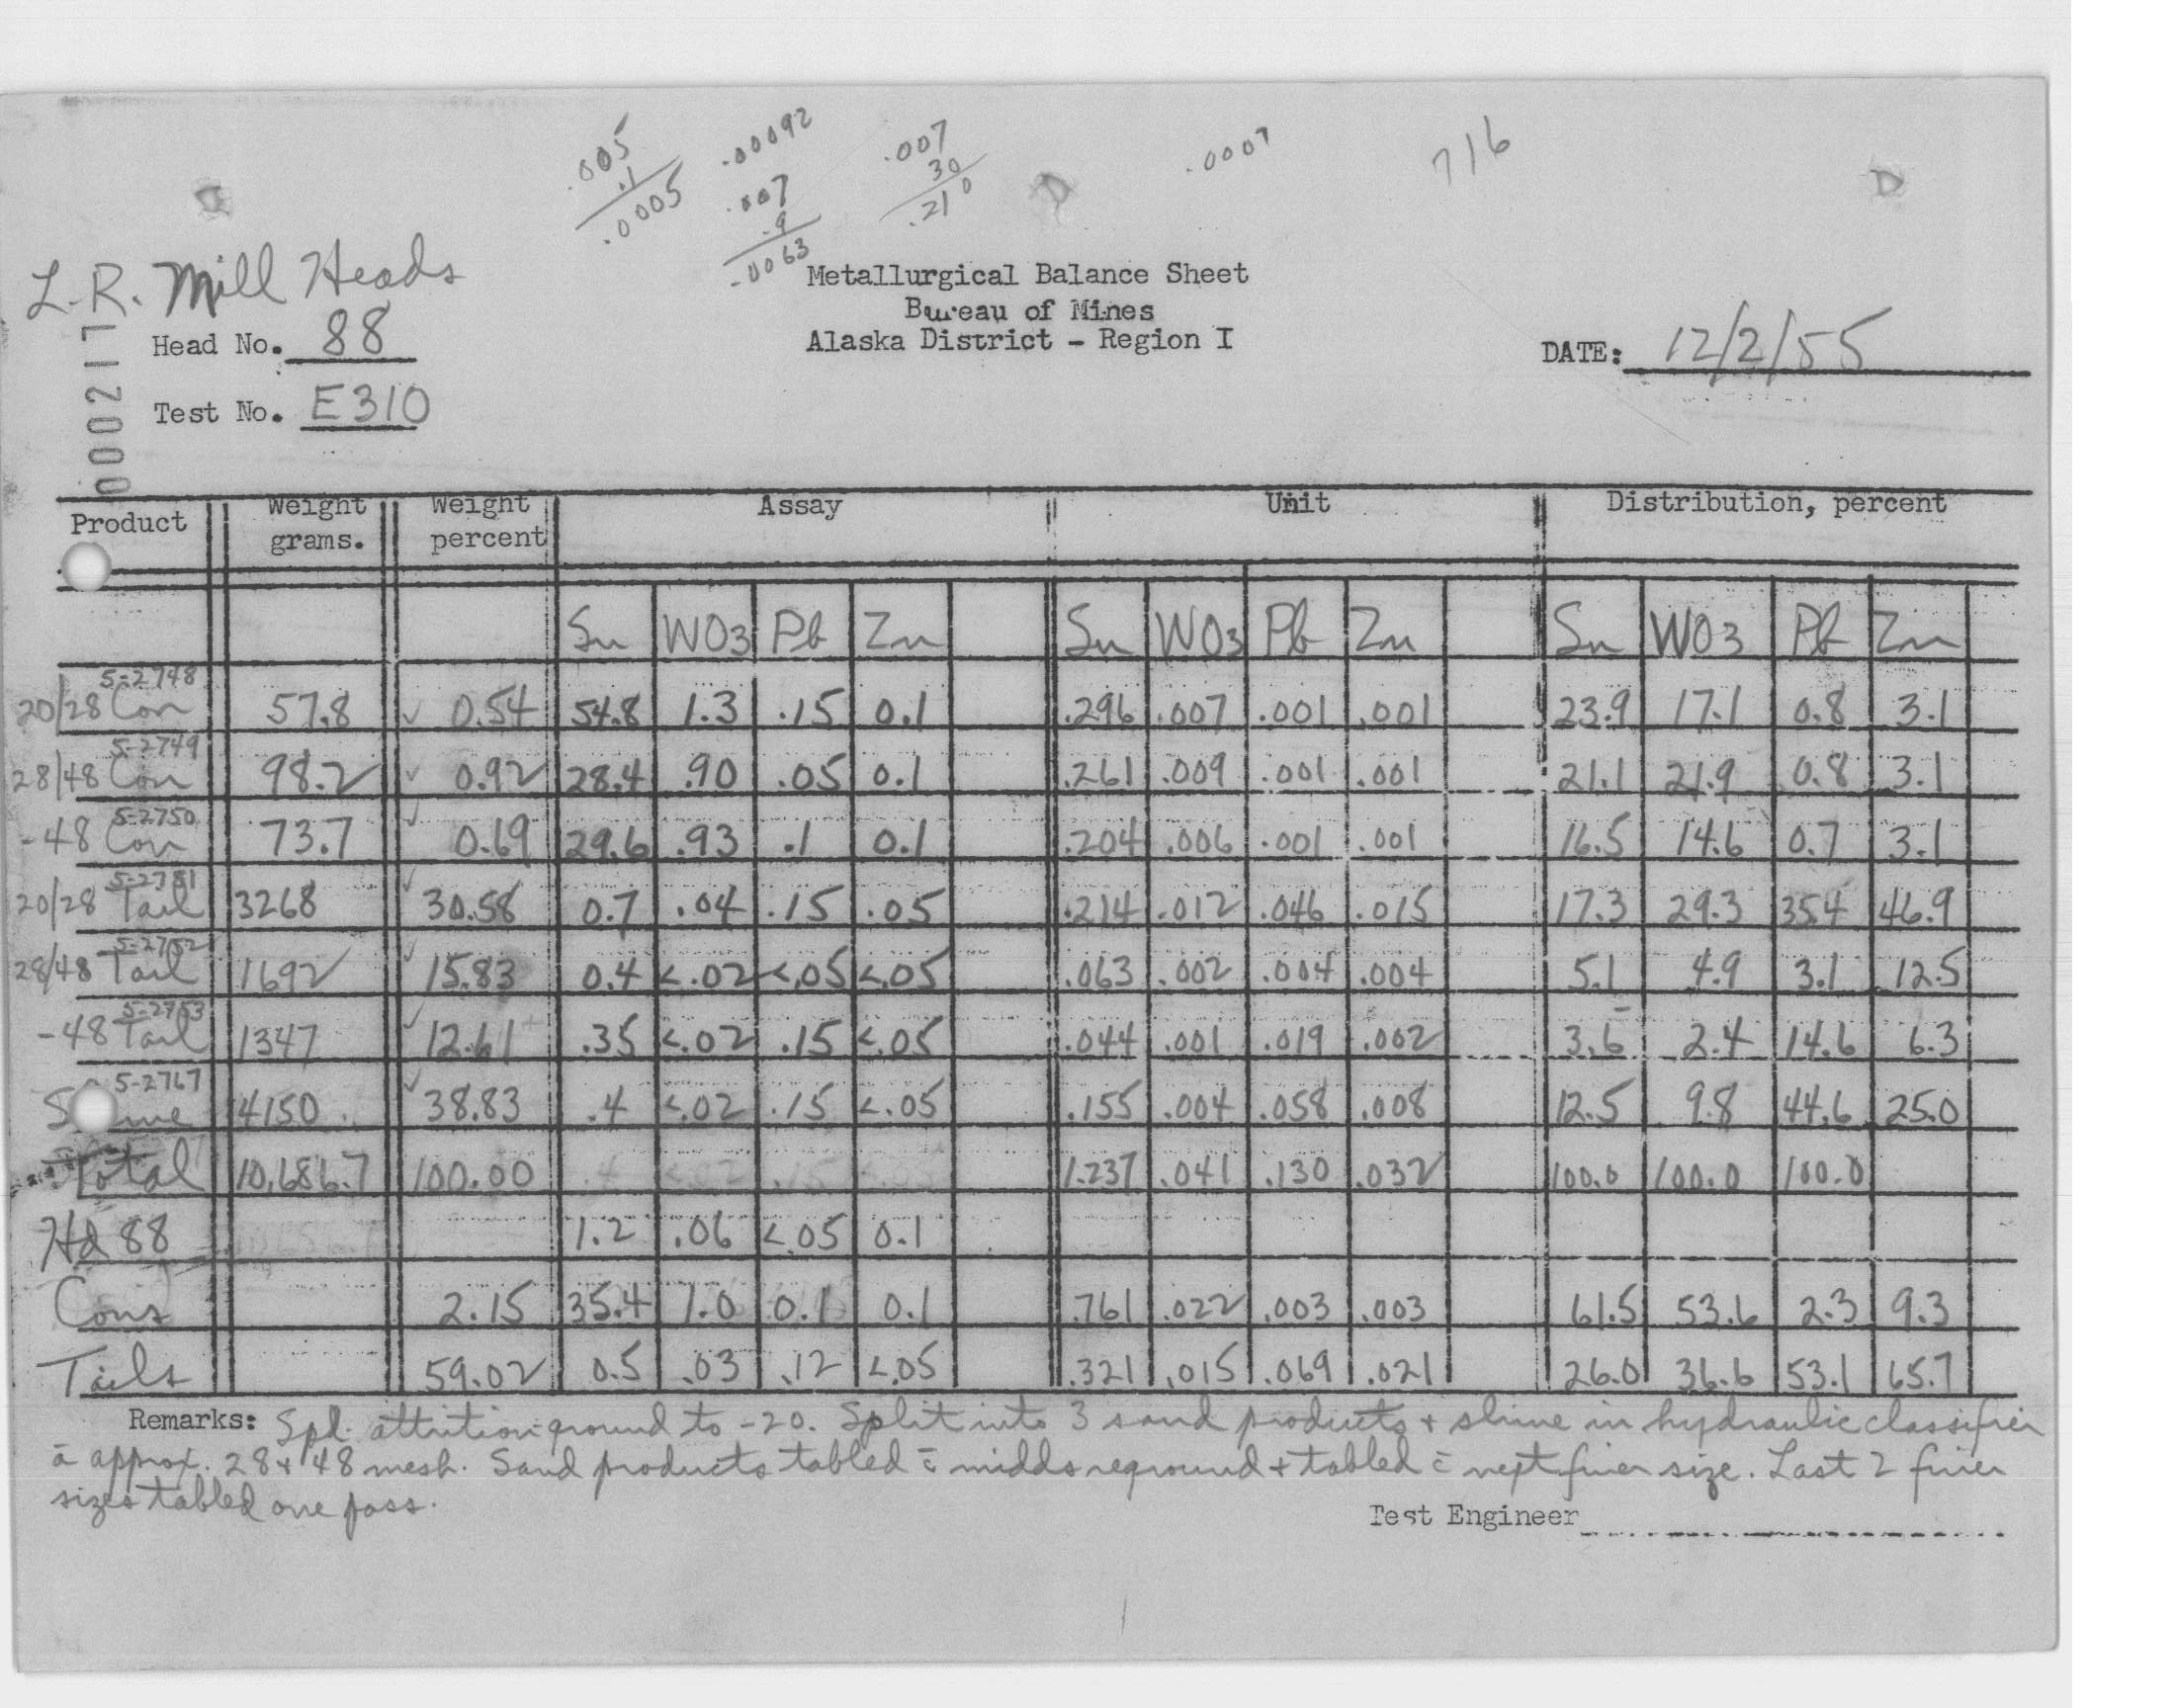 .005 .00092 .007 .0007 716
.1 .007 30
.0005 .9 .210
.0063
L.R. Mill Heads
Metallurgical Balance Sheet
Bureau of Mines
Alaska District - Region I
Head No. 88
DATE: 12/2/55
Test No. E310
000217
Product Weight grams. Weight percent Assay Unit Distribution, percent
Sn WO3 Pb Zn Sn WO3 Pb Zn Sn WO3 Pb Zn
5-2748
20/28 Con 57.8 ✓ 0.54 54.8 1.3 .15 0.1 .296 .007 .001 .001 23.9 17.1 0.8 3.1
5-2749
28/48 Con 98.2 ✓ 0.92 28.4 .90 .05 0.1 .261 .009 .001 .001 21.1 21.9 0.8 3.1
5-2750
-48 Con 73.7 ✓ 0.69 29.6 .93 .1 0.1 .204 .006 .001 .001 16.5 14.6 0.7 3.1
20/28 Tail 3268 ✓ 30.58 0.7 .04 .15 .05 .214 .012 .046 .015 17.3 29.3 35.4 46.9
5-2752
28/48 Tail 1692 ✓ 15.83 0.4 <.02 <.05 <.05 .063 .002 .004 .004 5.1 4.9 3.1 12.5
5-2753
-48 Tail 1347 ✓ 12.61 .35 <.02 .15 <.05 .044 .001 .019 .002 3.6 2.4 14.6 6.3
5-2767
4150 ✓ 38.83 .4 <.02 .15 <.05 .155 .004 .058 .008 12.5 9.8 44.6 25.0
Total 10,686.7 100.00 1.237 .041 .130 .032 100.0 100.0 100.0
Hd 88 1.2 .06 <.05 0.1
Cons 2.15 35.4 1.0 0.1 0.1 .761 .022 .003 .003 61.5 53.6 2.3 9.3
Tails 59.02 0.5 .03 .12 <.05 .321 .015 .069 .021 26.0 36.6 53.1 65.7
Remarks: Spl. attrition ground to -20. Split into 3 sand products + slime in hydraulic classifier
a approx. 28 + 48 mesh. Sand products tabled c̄ midds reground + tabled c̄ next finer size. Last 2 finer
sizes tabled one pass.
Test Engineer